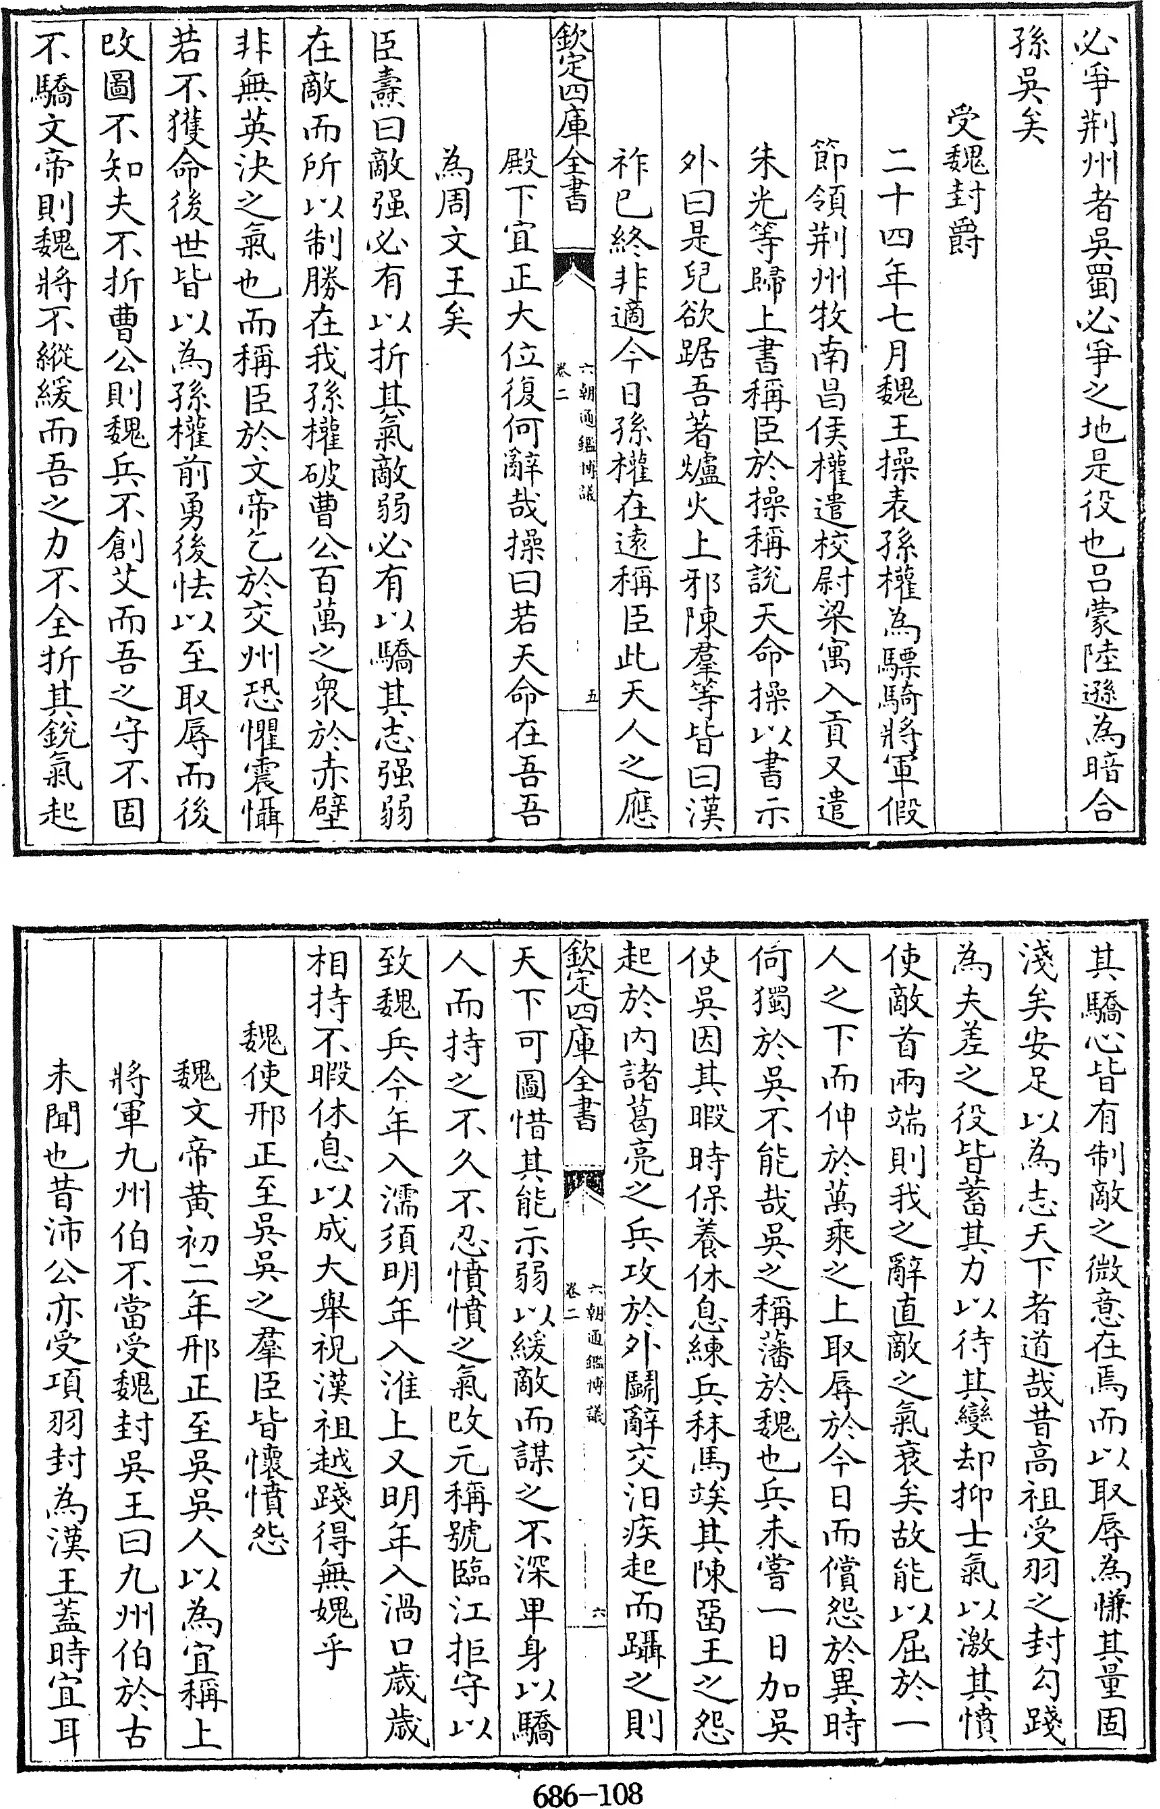 必爭荆州者吳蜀必爭之地是役也吕蒙陸遜為暗合
孫吳矣
受魏封爵
二十四年七月魏王操表孫權為驃騎將軍假
節領荆州牧南昌侯權遣校尉梁寓入貢又遣
朱光等歸上書稱臣於操稱說天命操以書示
外曰是兒欲踞吾著爐火上邪陳羣等皆曰漢
祚已終非適今日孫權在遠稱臣此天人之應
欽定四庫全書
六朝通鑑博議
卷二
五
殿下宜正大位復何辭哉操曰若天命在吾吾
為周文王矣
臣燾曰敵强必有以折其氣敵弱必有以驕其志强弱
在敵而所以制勝在我孫權破曹公百萬之衆於赤壁
非無英決之氣也而稱臣於文帝乞於交州恐懼震懾
若不獲命後世皆以為孫權前勇後怯以至取辱而後
改圖不知夫不折曹公則魏兵不創艾而吾之守不固
不驕文帝則魏將不縱緩而吾之力不全折其銳氣起
其驕心皆有制敵之微意在焉而以取辱為慊其量固
淺矣安足以為志天下者道哉昔高祖受羽之封勾踐
為夫差之役皆蓄其力以待其變却抑士氣以激其憤
使敵首兩端則我之辭直敵之氣衰矣故能以屈於一
人之下而伸於萬乘之上取辱於今日而償怨於異時
何獨於吳不能哉吳之稱藩於魏也兵未嘗一日加吳
使吳因其暇時保養休息練兵秣馬竢其陳畱王之怨
起於内諸葛亮之兵攻於外鬭辭交汨疾起而躡之則
欽定四庫全書
六朝通鑑博議
卷二
六
天下可圖惜其能示弱以緩敵而謀之不深卑身以驕
人而持之不久不忍憤憤之氣改元稱號臨江拒守以
致魏兵今年入濡須明年入淮上又明年入渦口歲歲
相持不暇休息以成大舉視漢祖越踐得無媿乎
魏使邢正至吳吳之羣臣皆懷憤怨
魏文帝黄初二年邢正至吳吳人以為宜稱上
將軍九州伯不當受魏封吳王曰九州伯於古
未聞也昔沛公亦受項羽封為漢王蓋時宜耳
686-108